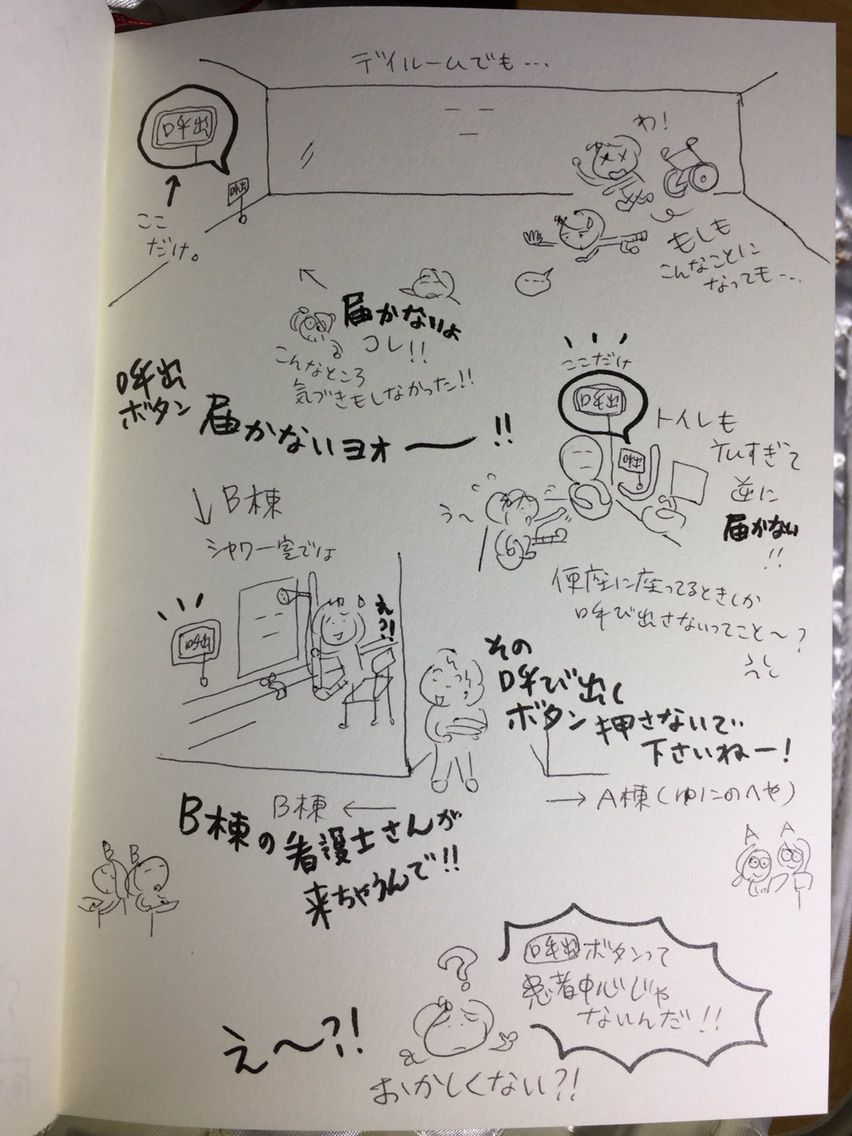 デイルームでも…
呼出
呼出
↑
ここ
だけ。
わ!
もしも
こんなことに
なっても…
届かないよ
コレ!!
こんなところ
気づきもしなかった!!
呼出
ボタン
届かないヨォ〜!!
ここだけ
呼出
呼出
トイレも
広すぎて
逆に
届かない
!!
う〜
便座に座ってるときしか
呼び出さないってこと〜?
↓B棟
シャワー室では
呼出
え?!
その
呼び出し
ボタン押さないで
下さいねー!
B棟 ←
→ A棟(ゆにのへや)
B棟の看護士さんが
来ちゃうんで!!
B B
A A
呼出ボタンって
患者中心じゃ
ないんだ!!
?
え〜?!
おかしくない?!